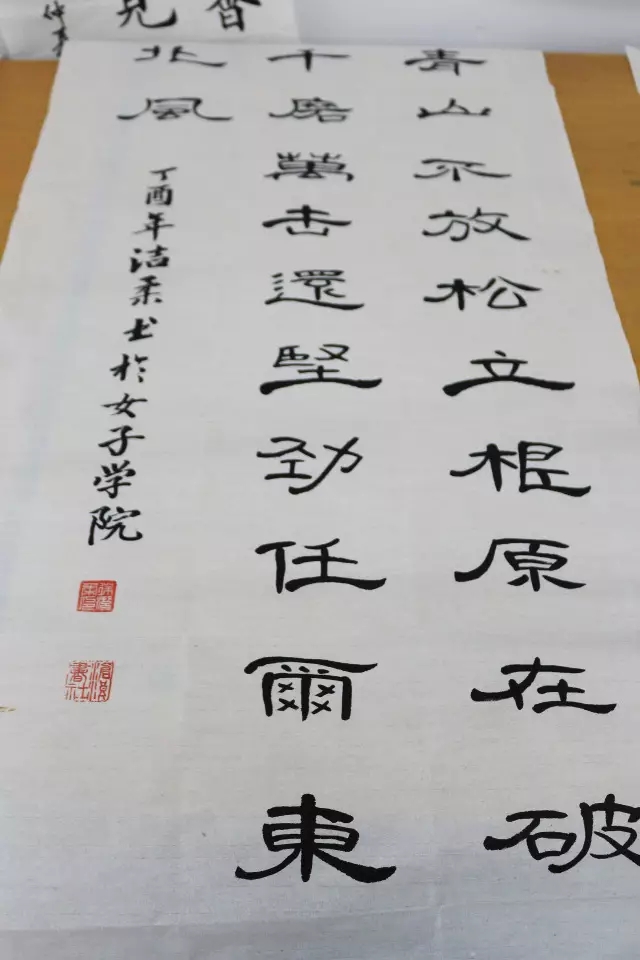 青山不放松立根原在破
千磨萬击還堅劲任爾東
北風
丁酉年洁柔书於女子学院
滄浪書社